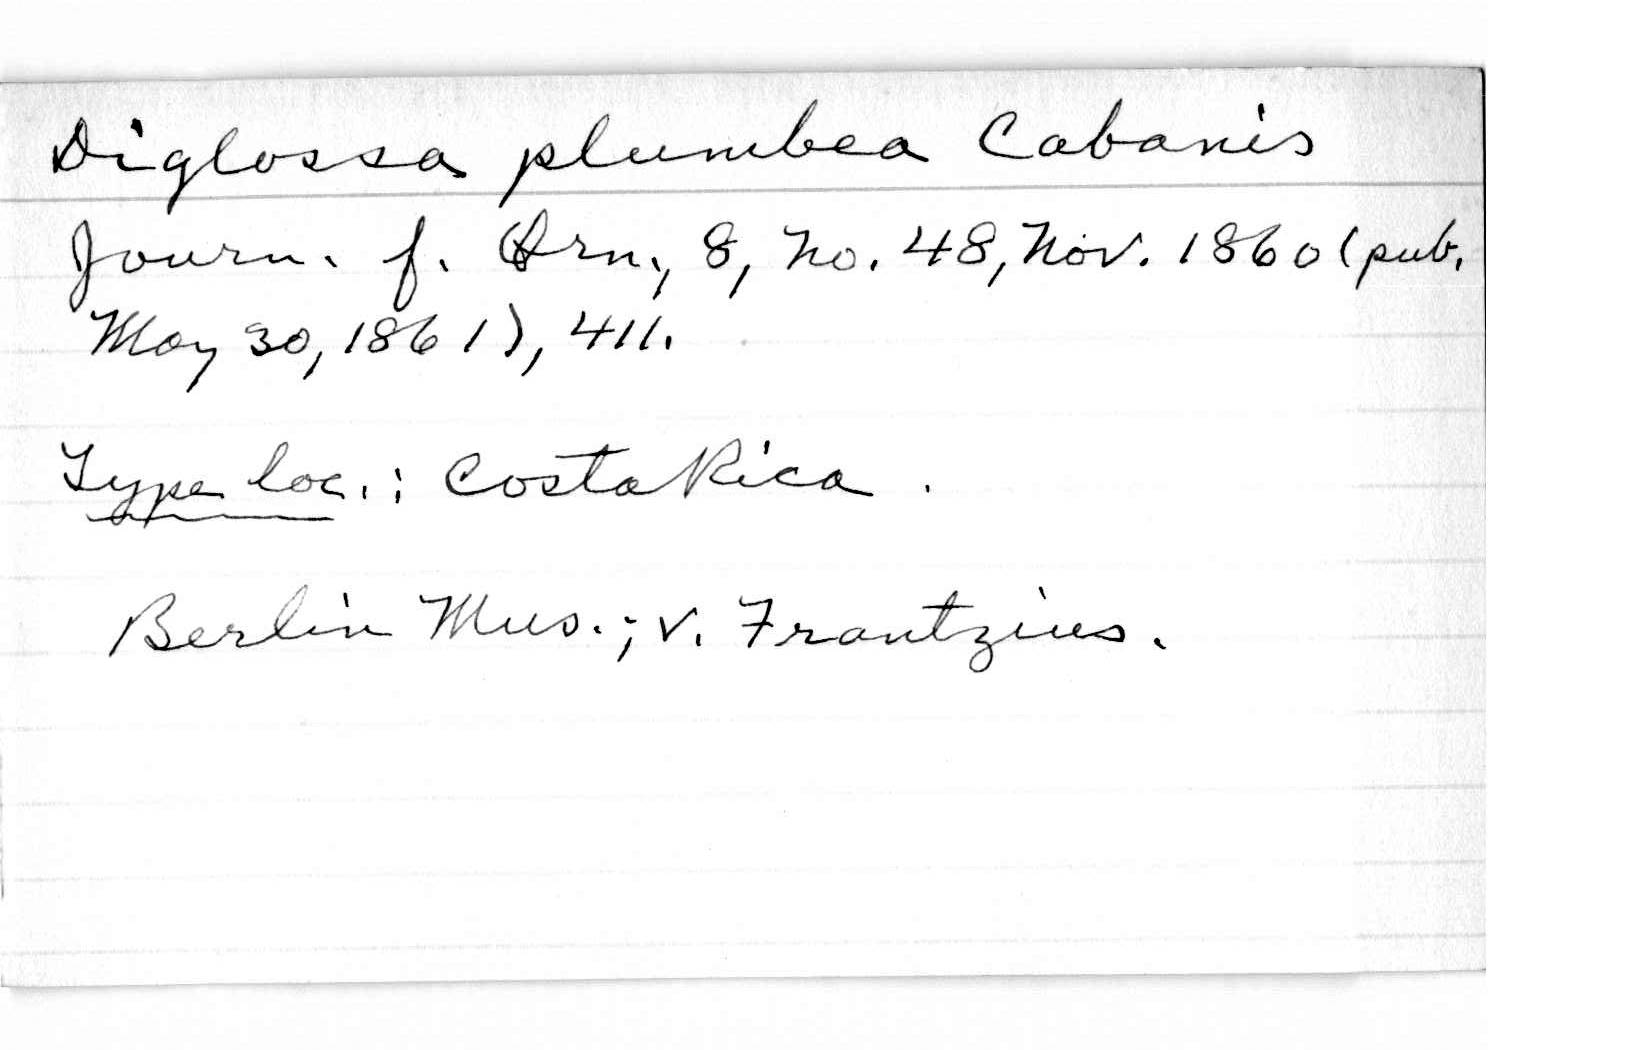 Diglossa plumbea Cabanis
Journ. f. Orn., 8, no. 48, Nov. 1860 (pub.
May 30, 1861), 411.
Type loc.: Costa Rica.
Berlin Mus.; v. Frantzius.